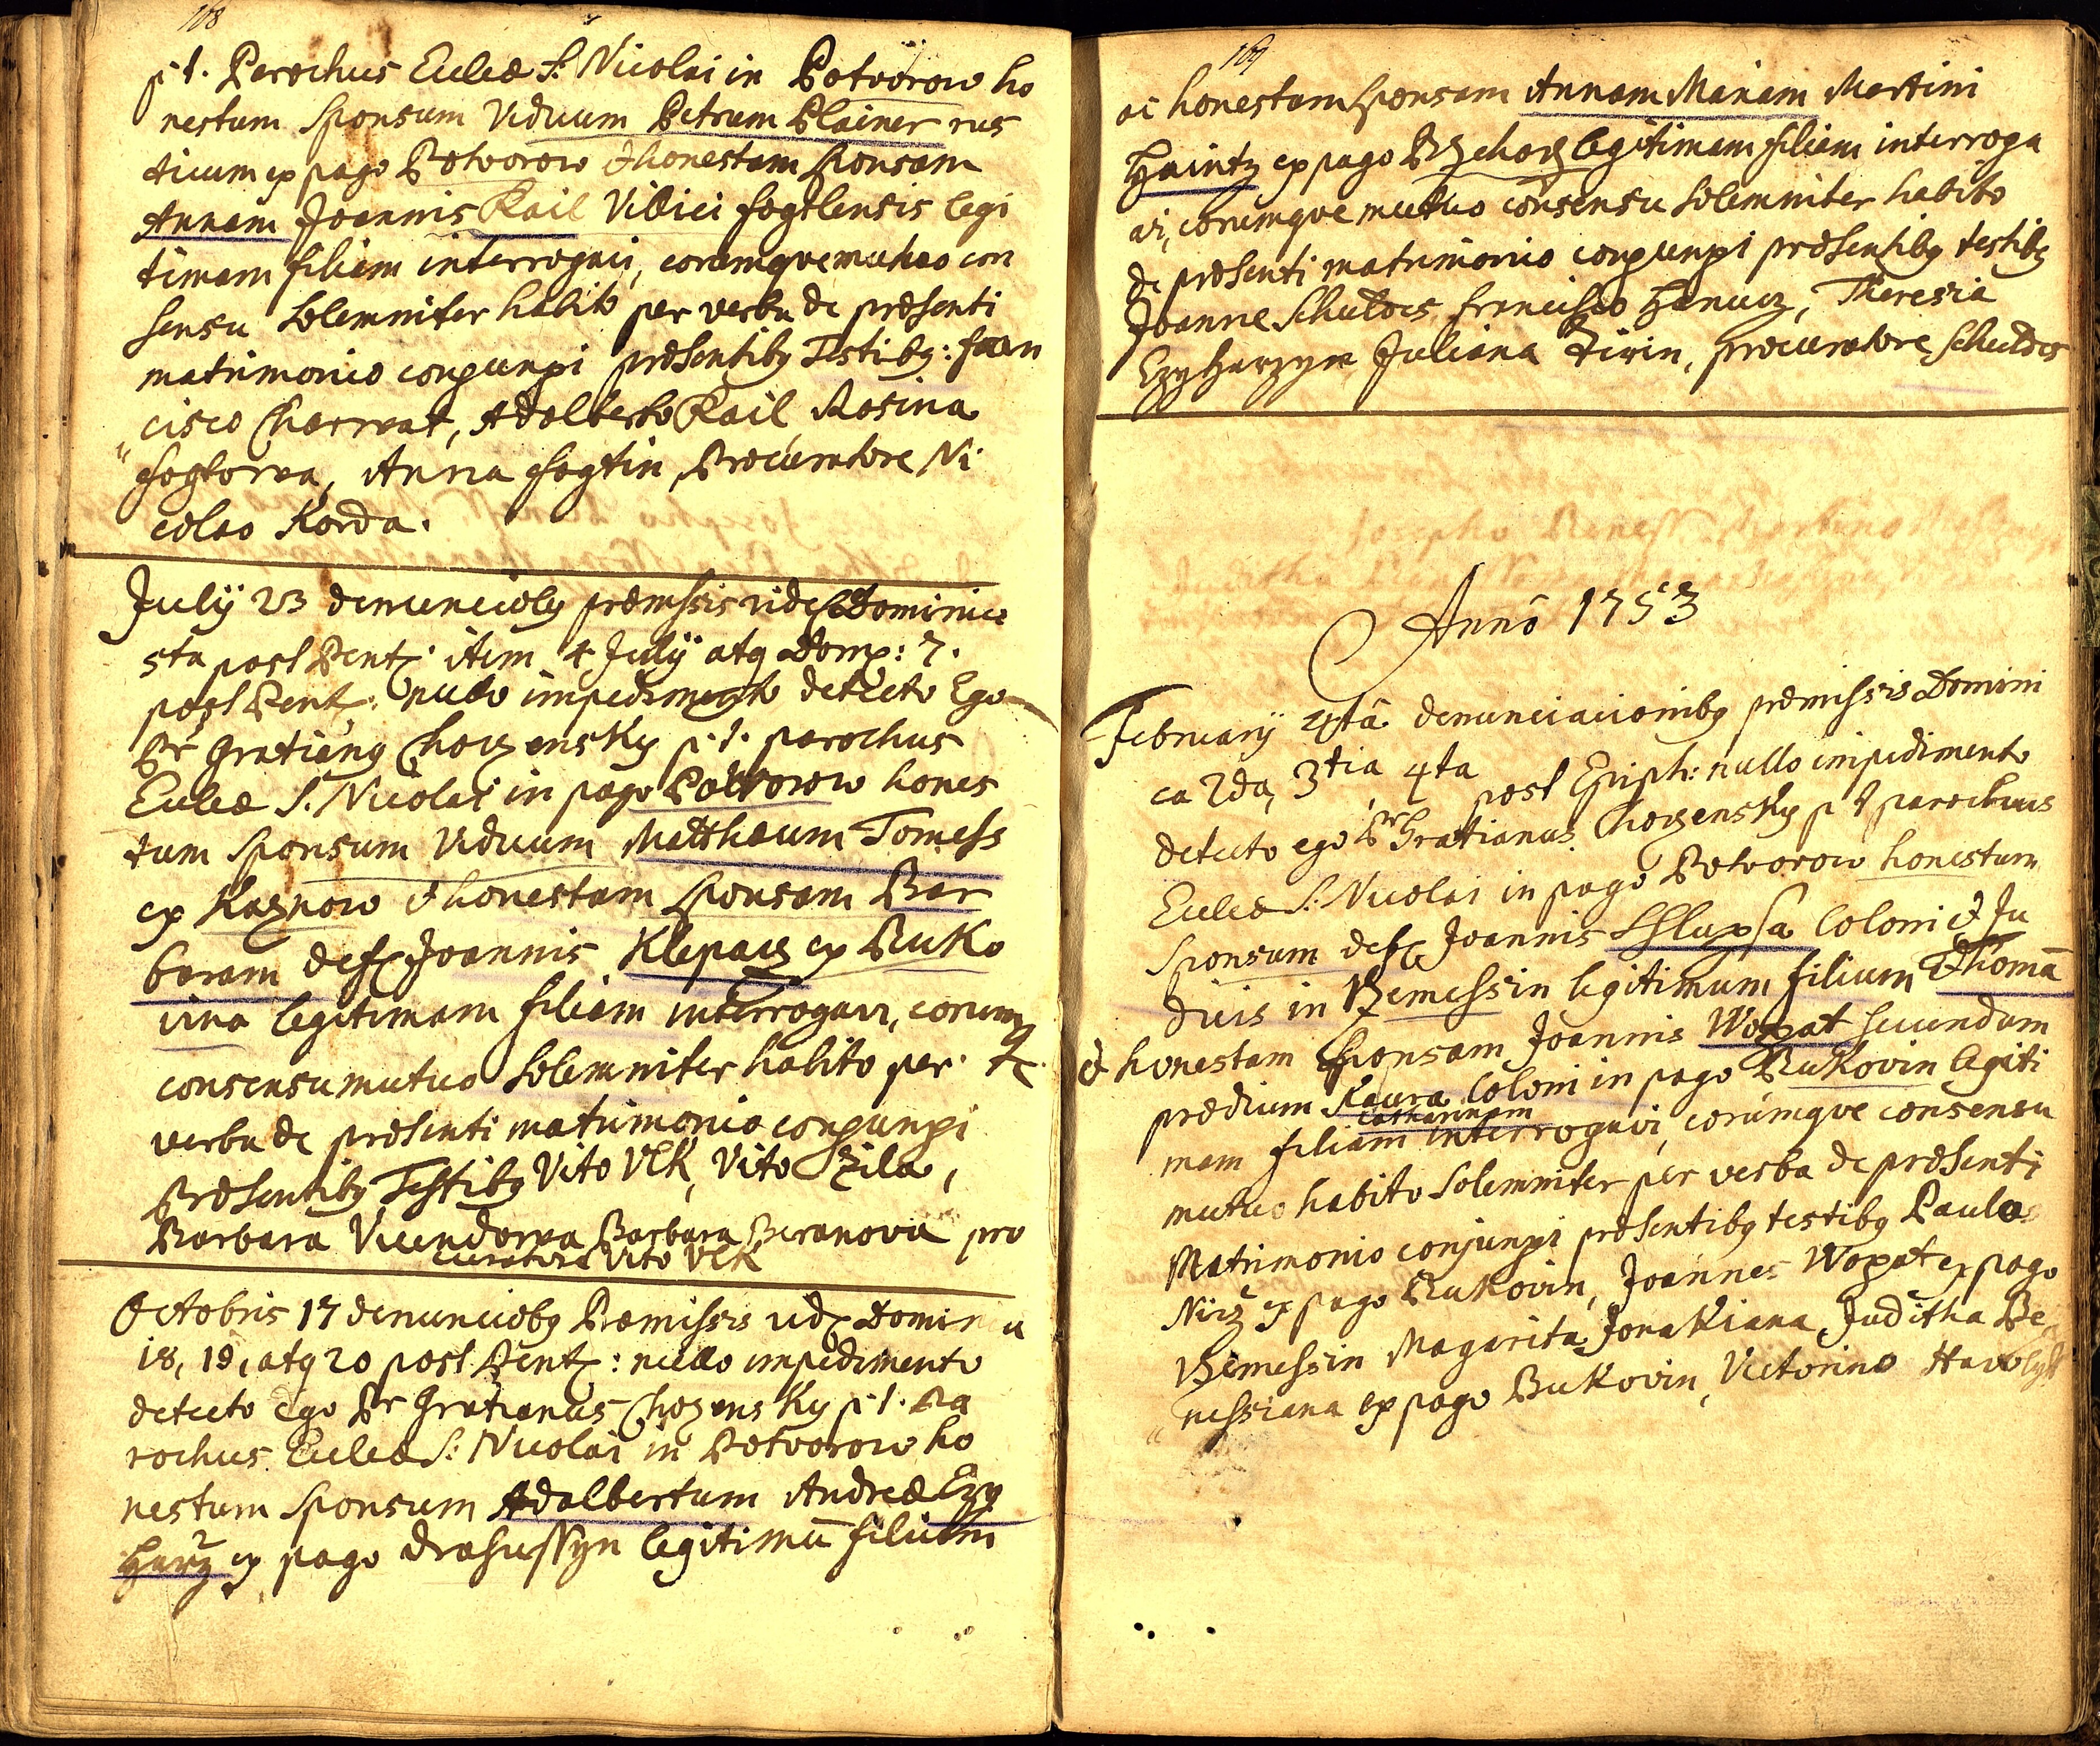 108
p. t. Parochus Eccleæ S: Nicolai in Potvorow ho
nestum Sponsum Viduum Petrum Plainer rus
ticum ex pago Potvorow & honestam Sponsam
Annam Joannis Kail Villici legi
timam filiam interrogavi, eorumqve mutuo con
sensu Solemniter habito per verba de præsenti
matrimonio conjunxi præsentibg Testibg: fran
cisco Charvat, Adalberto Kail Rosina
Anna Procuratore Ni
colao Korda.
July 23 denunciõbg præmissis Dominica
5ta post Pent: item 4 July atq Domca: 7.
post Pent: nullo impedimento detecto Ego
Pr Gratiang Chozensky p. t. parochus
Eccleæ S. Nicolai in pago Potworow hones
tum Sponsum Viduum Matthæum Tomess
ex Kaznow & honestam Sponsam Bar
baram Joannis Klepacz ex Buko
vina legitimam filiam interrogavi, eorumq
consensu mutuo Solemniter habito per
verba de præsenti matrimonio conjunxi
Præsentibg Testibg Vito Vlk, Vito Zila,
Barbara Barbara Beranova pro
curatore Vito Vlk
Octobris 17 denunciõbg Præmissis Domin a
18, 19, atq 20 post Pent: nullo impedimento
detecto Ego Pr Gratianus Chozensky p. t. Pa
rochus Eccleæ S: Nicolai in Potvorow ho
nestum Sponsum Adalbertum Andreæ Ezy
Harz ex pago Drahussyn legitimū filium
109
ac honestam Sponsam Annam Mariam Martini
Haintz ex pago legitimam filiam interroga
vi, eorumqve mutuo consensu Solemniter habito
de præsenti matrimonio conjunxi præsentibg testibg
Joanne Schuldes francisco Hanucz, Theresia
Juliana procuratore Schuldes
Annō 1753
February 4tâ denunciacionibg præmissis Domini
ca 2da, 3tia, 4ta post Epiph: nullo impedimento
detecto ego Pr Gratianus Chozensky p t parochus
Eccleæ S: Nicolai in pago Potvorow honestum
Sponsum Joannis Coloni & Ju
dicis in Bemessin legitimum filium Thomā
& honestam Sponsam Joannis Wopat secundum
prædium Coloni in pago Bukovin legiti
Catharinam
mam filiam interrogavi, eorumqve consensu
mutuo habito Solemniter per verba de præsenti
Matrimonio conjunxi præsentibg testibg Paulo
ex pago Bukovin, Joannes Wopat ex pago
Bemessin Magarita Jonakiana, Juditha Be
nessiana ex pago Bukovin, Victorino